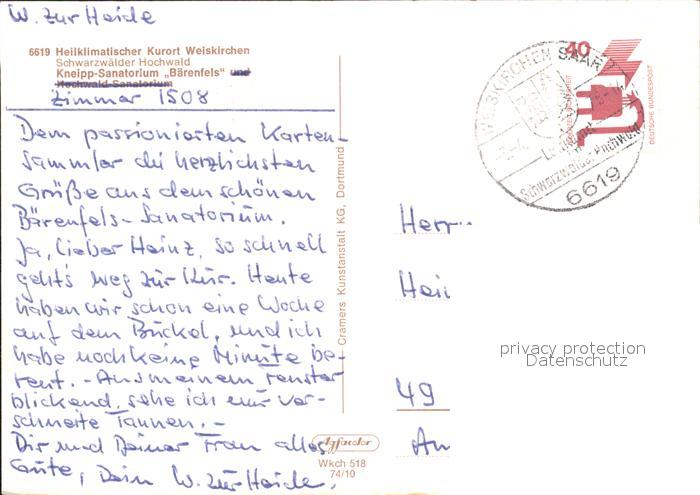 W. zur Heide
6619 Heilklimatischer Kurort Weiskirchen
Schwarzwälder Hochwald
Kneipp-Sanatorium „Bärenfels" und
Hochwald-Sanatorium
Zimmer 1508
Dem passionierten Karten-
sammler die herzlichsten
Grüße aus dem schönen
Bärenfels-Sanatorium.
Ja, lieber Heinz, so schnell
geht's weg zur Kur. Heute
haben wir schon eine Woche
auf dem Buckel, und ich
habe noch keine Minute be-
reut. - Aus meinem Fenster
blickend, sehe ich nur ver-
schneite Tannen. -
Dir und Deiner Frau alles
Gute, Dein W. zur Heide.
Cramers Kunstanstalt KG, Dortmund
Agfacolor
Wkch 518
74/10
40
DEUTSCHE BUNDESPOST
WEISKIRCHEN SAAR
Luftkurort
im
Schwarzwälder Hochwald
6619
Herr
Hei
49
An
privacy protection
Datenschutz